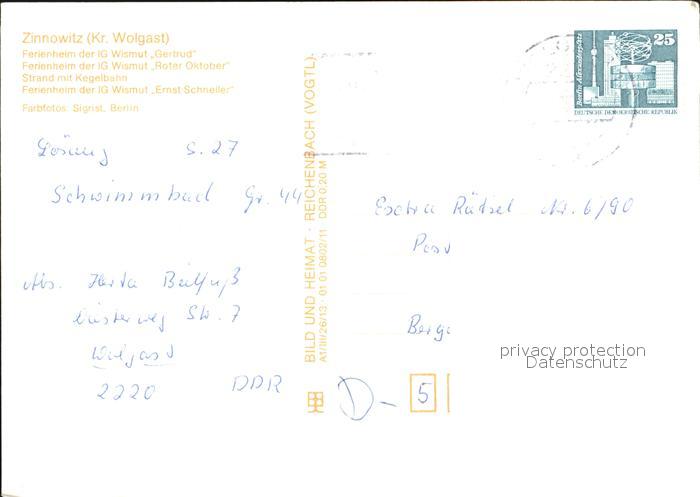 Zinnowitz (Kr. Wolgast)
Ferienheim der IG Wismut „Gertrud"
Ferienheim der IG Wismut „Roter Oktober"
Strand mit Kegelbahn
Ferienheim der IG Wismut „Ernst Schneller"
Farbfotos: Sigrist, Berlin
Lösung S. 27
Schwimmbad Gr. 44
Abs. Herta
Str. 7
Wolgast
2220 DDR
BILD UND HEIMAT · REICHENBACH (VOGTL)
A1/III/26/13 · 01 01 0802/11 DDR 0,20 M
25
Berlin, Alexanderplatz
DEUTSCHE DEMOKRATISCHE REPUBLIK
Extra Rätsel Nr. 6/90
Post
Berg
D- 5
privacy protection
Datenschutz